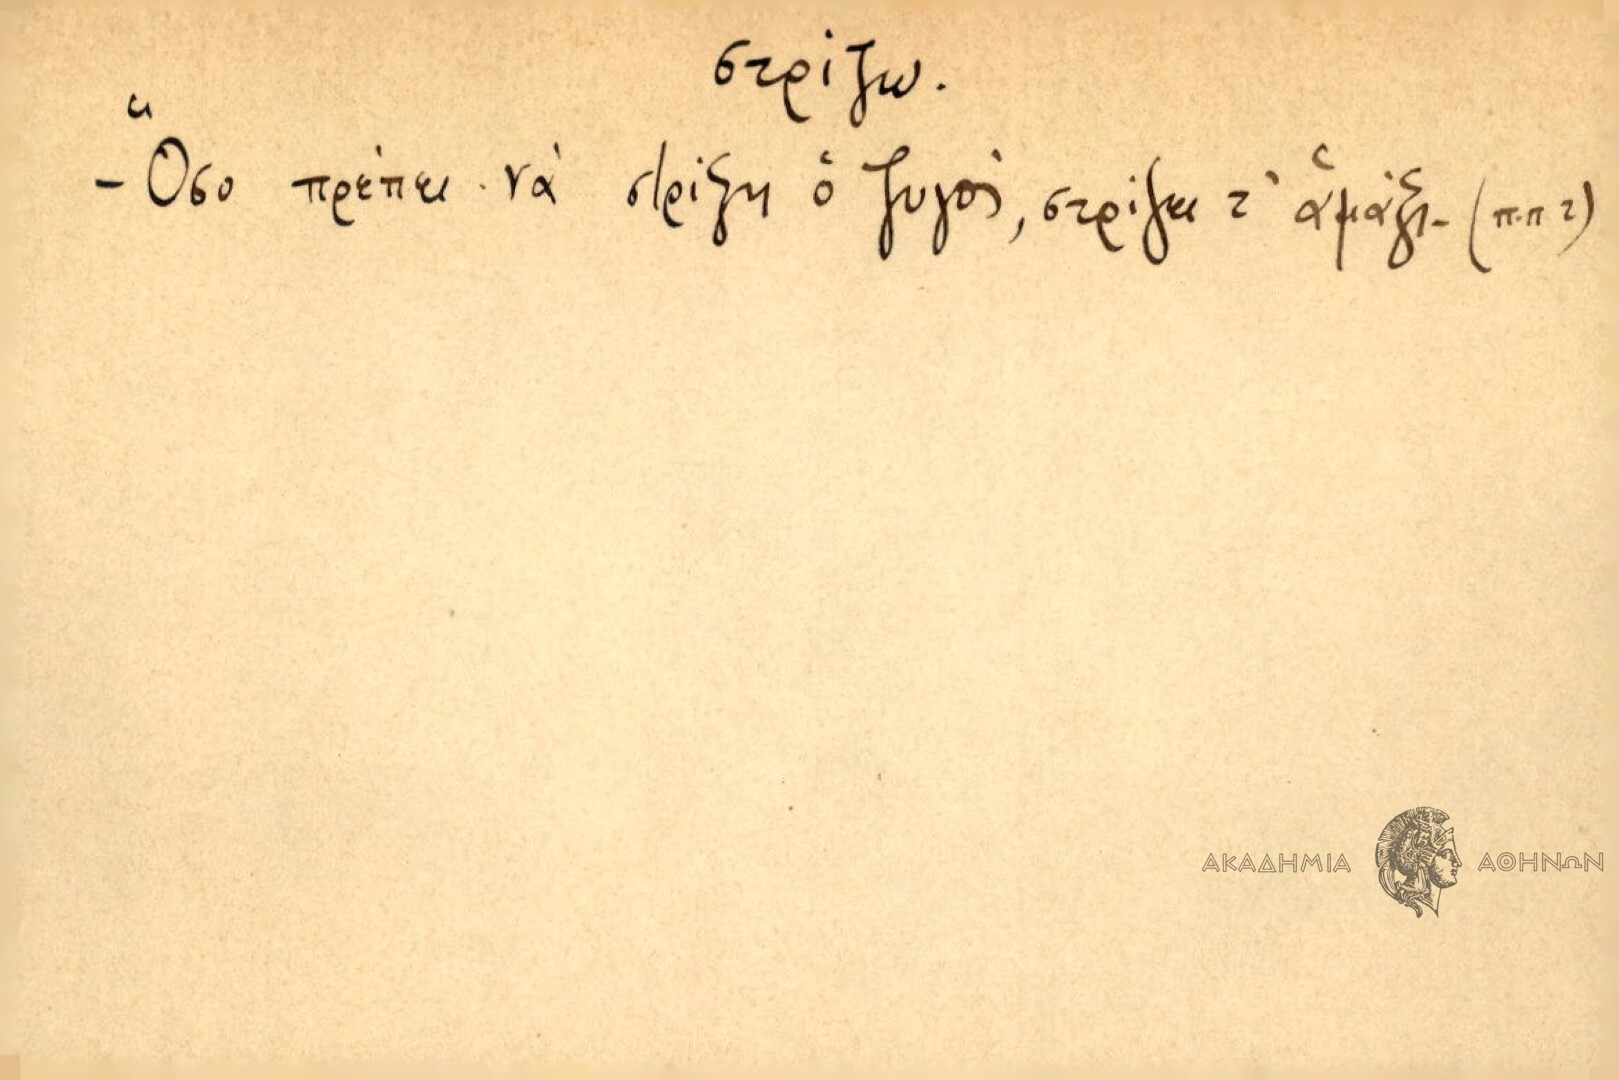 στρίζω.
- Ὅσο πρέπει νὰ στρίζη ὁ ζυγὸς, στρίζει τ' ἁμάξι- (π.π τ)
ΑΚΑΔΗΜΙΑ ΑΘΗΝΩΝ